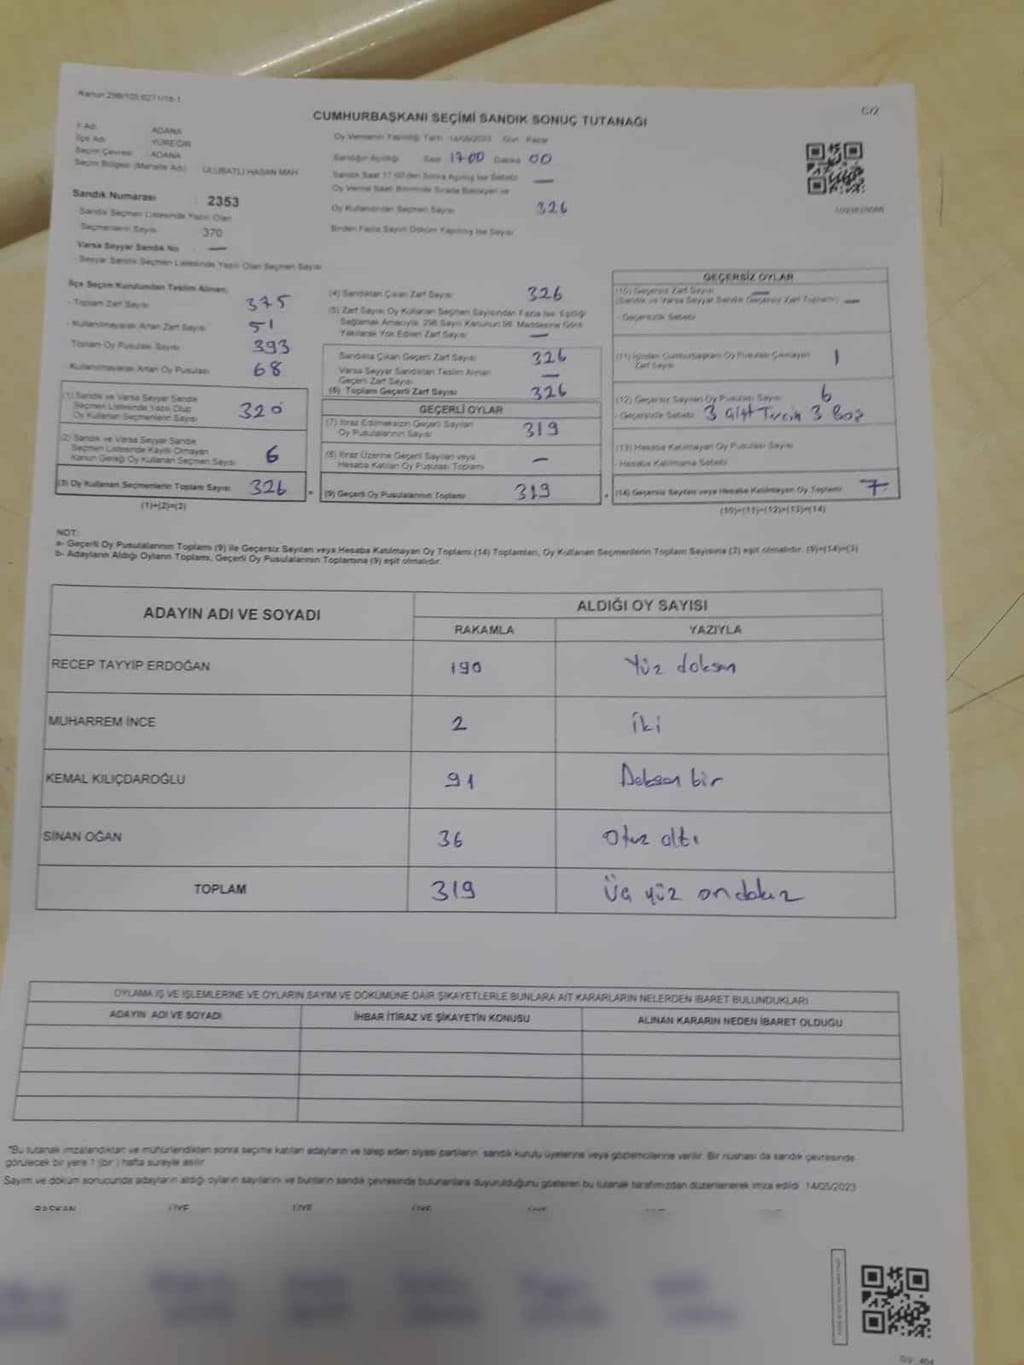 Kanun:298/105,6271/16-1
C/2
CUMHURBAŞKANI SEÇİMİ SANDIK SONUÇ TUTANAĞI
İl Adı ADANA
İlçe Adı YÜREĞİR
Seçim Çevresi : ADANA
Seçim Bölgesi (Mahalle Adı) ULUBATLI HASAN MAH
Oy Vermenin Yapıldığı Tarih 14/05/2023 Gün Pazar
Sandığın Açıldığı Saat 17:00 Dakika 00
Sandık Saat 17:00'den Sonra Açılmış İse Sebebi —
Oy Verme Saati Bitiminde Sırada Bekleyen ve
Oy Kullandırılan Seçmen Sayısı 326
Birden Fazla Sayım Döküm Yapılmış İse Sayısı
Sandık Numarası : 2353
- Sandık Seçmen Listesinde Yazılı Olan
Seçmenlerin Sayısı 370
Varsa Seyyar Sandık No —
- Seyyar Sandık Seçmen Listesinde Yazılı Olan Seçmen Sayısı
İlçe Seçim Kurulundan Teslim Alınan;
- Toplam Zarf Sayısı 375
- Kullanılmayarak Artan Zarf Sayısı 51
Toplam Oy Pusulası Sayısı 393
Kullanılmayarak Artan Oy Pusulası 68
(1) Sandık ve Varsa Seyyar Sandık
Seçmen Listesinde Yazılı Olup
Oy Kullanan Seçmenlerin Sayısı 320
(2) Sandık ve Varsa Seyyar Sandık
Seçmen Listesinde Kayıtlı Olmayan
Kanun Gereği Oy Kullanan Seçmen Sayısı 6
(3) Oy Kullanan Seçmenlerin Toplam Sayısı 326
(1)+(2)=(3)
(4) Sandıktan Çıkan Zarf Sayısı 326
(5) Zarf Sayısı Oy Kullanan Seçmen Sayısından Fazla İse, Eşitliği
Sağlamak Amacıyla; 298 Sayılı Kanunun 98. Maddesine Göre
Yakılarak Yok Edilen Zarf Sayısı —
Sandıkta Çıkan Geçerli Zarf Sayısı 326
Varsa Seyyar Sandıktan Teslim Alınan
Geçerli Zarf Sayısı —
(6) Toplam Geçerli Zarf Sayısı 326
GEÇERLİ OYLAR
(7) İtiraz Edilmeksizin Geçerli Sayılan
Oy Pusulalarının Sayısı 319
(8) İtiraz Üzerine Geçerli Sayılan veya
Hesaba Katılan Oy Pusulası Toplamı —
(9) Geçerli Oy Pusulalarının Toplamı 319
GEÇERSİZ OYLAR
(10) Geçersiz Zarf Sayısı —
(Sandık ve Varsa Seyyar Sandık Geçersiz Zarf Toplamı) —
- Geçersizlik Sebebi
(11) İçinden Cumhurbaşkanı Oy Pusulası Çıkmayan
Zarf Sayısı 1
(12) Geçersiz Sayılan Oy Pusulası Sayısı 6
-Geçersizlik Sebebi 3 Çift Tercih 3 Boş
(13) Hesaba Katılmayan Oy Pusulası Sayısı
- Hesaba Katılmama Sebebi
(14) Geçersiz Sayılan veya Hesaba Katılmayan Oy Toplamı 7
(10)+(11)+(12)+(13)=(14)
NOT:
a- Geçerli Oy Pusulalarının Toplamı (9) ile Geçersiz Sayılan veya Hesaba Katılmayan Oy Toplamı (14) Toplamları, Oy Kullanan Seçmenlerin Toplam Sayısına (3) eşit olmalıdır. (9)+(14)=(3)
b- Adayların Aldığı Oyların Toplamı, Geçerli Oy Pusulalarının Toplamına (9) eşit olmalıdır.
ADAYIN ADI VE SOYADI
ALDIĞI OY SAYISI
RAKAMLA YAZIYLA
RECEP TAYYİP ERDOĞAN 190 Yüz doksan
MUHARREM İNCE 2 iki
KEMAL KILIÇDAROĞLU 91 Doksan bir
SİNAN OĞAN 36 Otuz altı
TOPLAM 319 Üç yüz ondokuz
OYLAMA İŞ VE İŞLEMLERİNE VE OYLARIN SAYIM VE DÖKÜMÜNE DAİR ŞİKAYETLERLE BUNLARA AİT KARARLARIN NELERDEN İBARET BULUNDUKLARI
ADAYIN ADI VE SOYADI İHBAR İTİRAZ VE ŞİKAYETİN KONUSU ALINAN KARARIN NEDEN İBARET OLDUĞU
*Bu tutanak imzalandıktan ve mühürlendikten sonra seçime katılan adayların ve talep eden siyasi partilerin sandık kurulu üyelerine veya gözlemcilerine verilir. Bir nüshası da sandık çevresinde
görülecek bir yere 1 (bir) hafta süreyle asılır
Sayım ve döküm sonucunda adayların aldığı oyların sayılarını ve bunların sandık çevresinde bulunanlara duyurulduğunu gösteren bu tutanak tarafımızdan düzenlenerek imza edildi. 14/05/2023
BAŞKAN ÜYE ÜYE ÜYE ÜYE